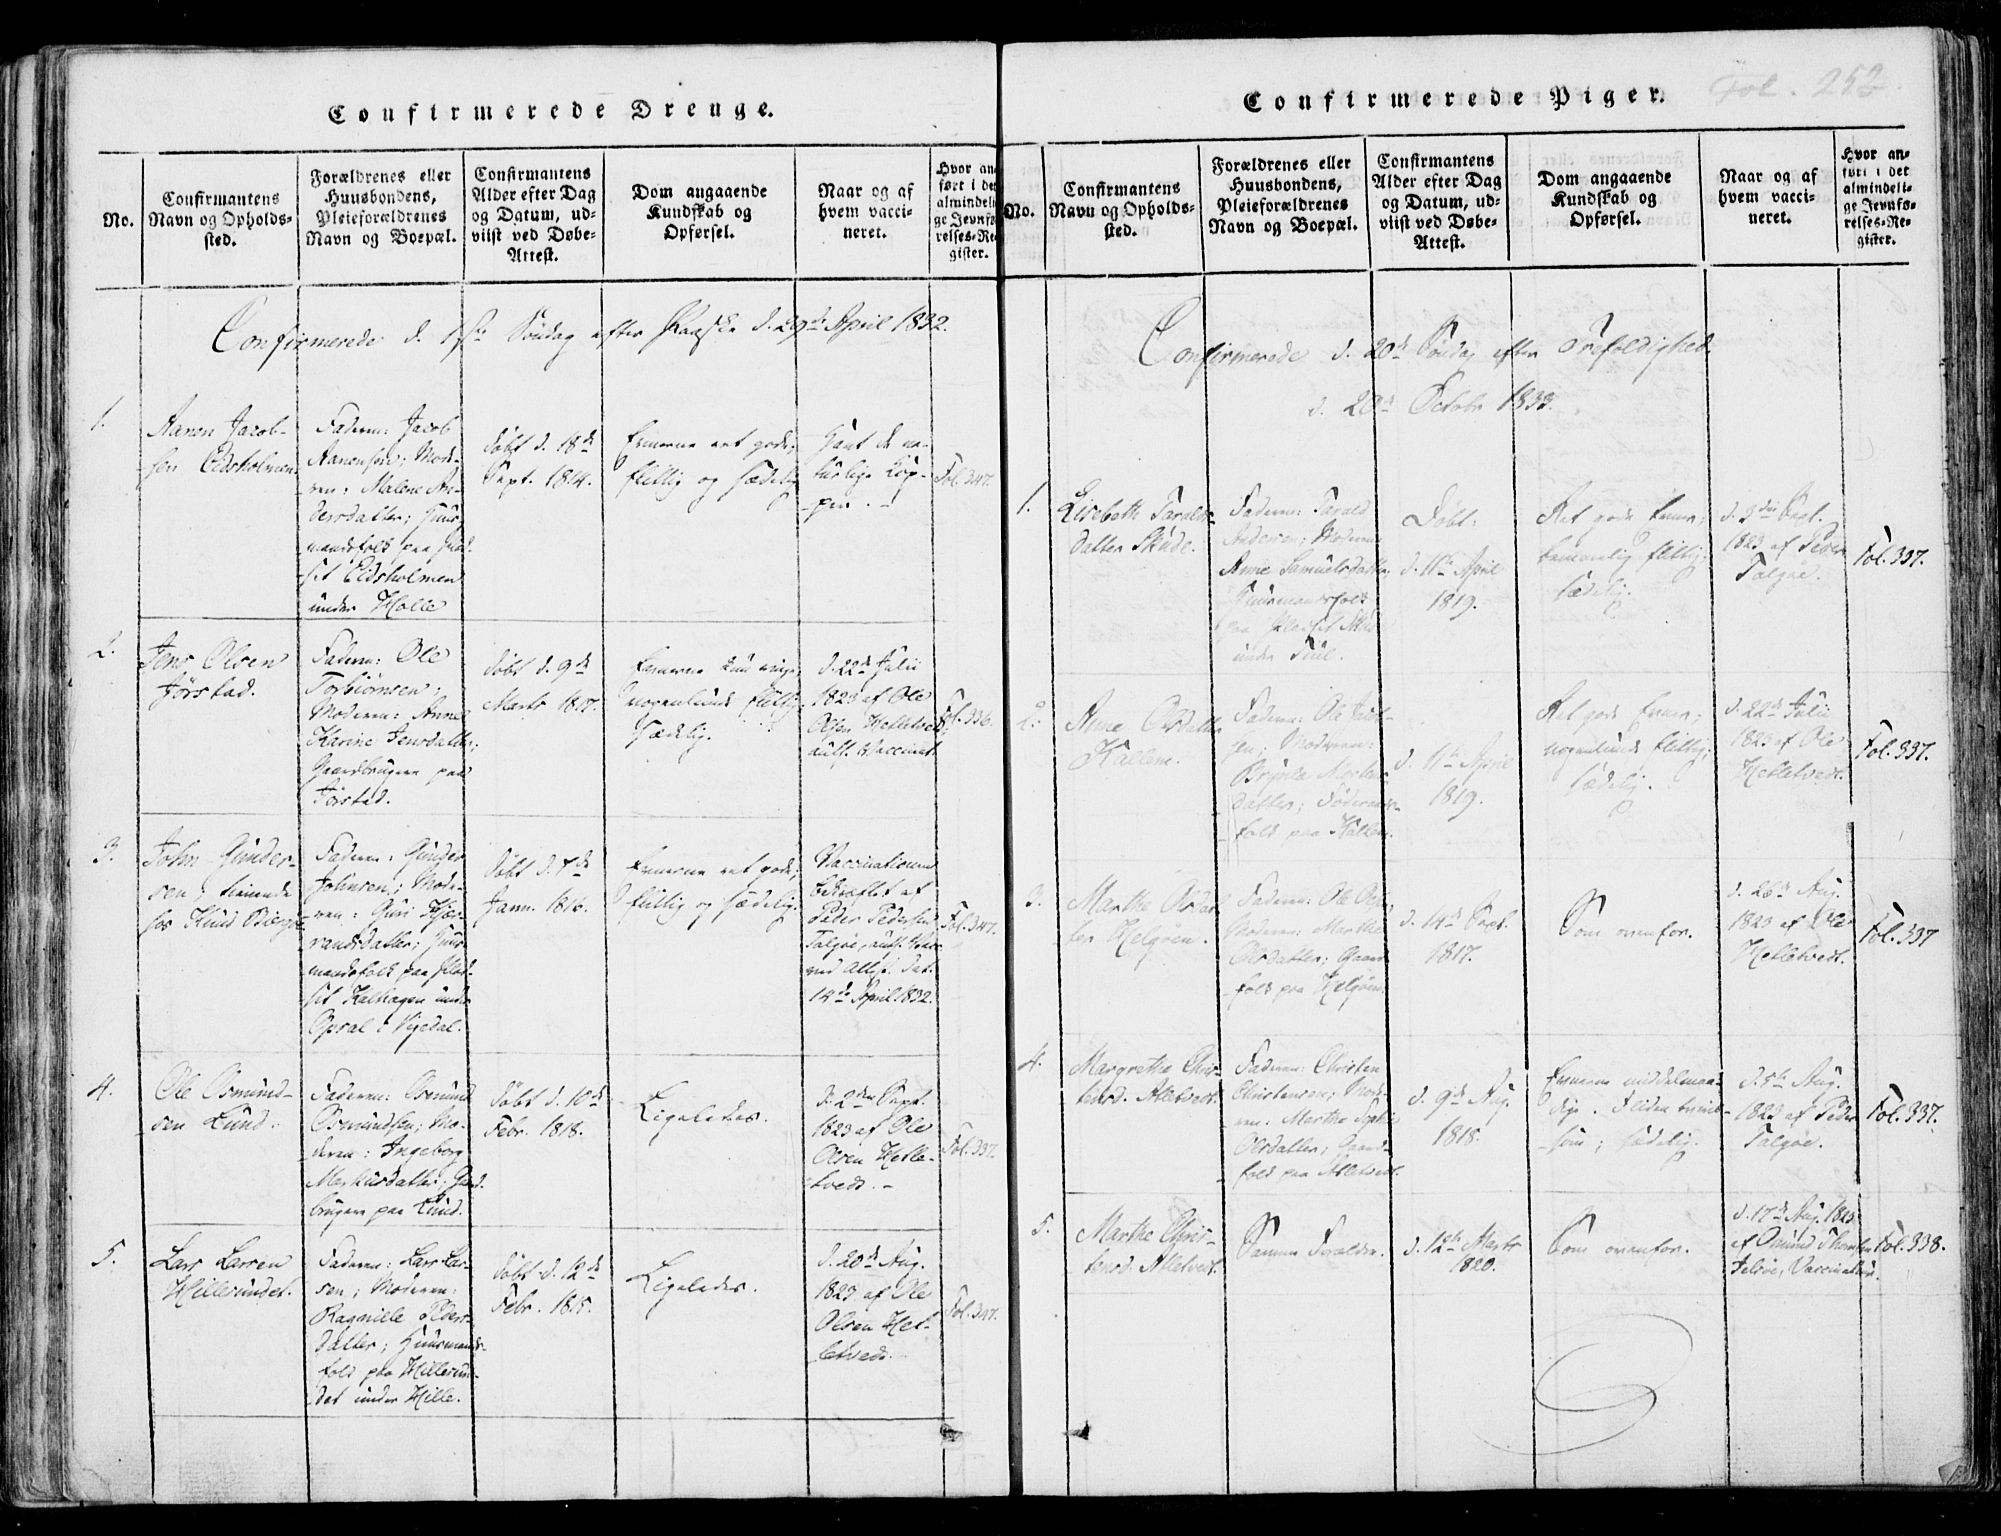 Confirmerede Drenge.
No.
Confirmantens
Navn og Opholds-
sted.
Forældrenes eller
Huusbondens,
Pleieforældrenes
Navn og Boepæl.
Confirmantens
Alder efter Dag
og Datum, ud-
viist ved Døbe-
Attest.
Dom angaaende
Kundskab og
Opførsel.
Naar og af
hvem vacci-
neret.
Hvor an
ført i de
almindeli
ge Jevnfø
relses-Re
gister.
Confirmerede d. 1ste Søndag efter Paaske d. 29de April 1832.
1.
Aanen Jacob-
sen Eidsholmen
Faderen: Jacob
Aanensen; Mode-
ren: Malene An-
dersdatter; Huus-
mandsfolk paa Plad-
set Eidsholmen
under Holle
døbt d. 18de
Sept. 1814.
Evnerne ret gode;
flittig og sædelig
Havt de na-
turlige Kop-
per. -
Fol. 347.
2.
Jens Olsen
Jørstad.
Faderen: Ole
Torbiørnsen;
Moderen: Anne
Karine Jensdatter;
Gaardbrugere paa
Jørstad.
døbt d. 9de
Marts 1817.
Evnerne kun ringe;
nogenlunde flittig;
sædelig.
d. 22de Julii
1823 af Ole
Olsen Hetletvedt,
auth. Vaccinat.
Fol. 336.
3.
John Gunder-
sen, tienende
hos Knud Biergøe
Faderen: Gunder
Johnsen; Mode-
ren: Guri
randsdatter; Huus-
mandsfolk paa Plad-
set Kalhagen under
Opsal i Vigedal.
døbt d. 7de
Janu. 1816.
Evnerne ret gode;
flittig og sædelig.
Vaccinationen
bekræftet af
Peder Pedersen
Talgøe, auth. Vac.
ved Attest. dat.
14de April 1832.
Fol. 347.
4.
Ole Osmund-
sen Lund.
Faderen: Osmund
Osmundsen; Mo-
deren: Ingeborg
Markusdatter; Gaard-
brugere paa Lund.
døbt d. 10de
Febr. 1818.
Ligeledes.
d. 2den Sept.
1823 af Ole
Olsen Hetle-
tvedt. -
Fol. 337.
5.
Lars Larsen
Hillesundet.
Faderen: Lars Lar-
sen; Moderen:
Ragnilde Peders-
datter; Huusmands-
folk paa Hillesun-
det under Hille.
døbt d. 12de
Febr. 1815.
Ligeledes.
d. 20de Aug.
1823 af Ole
Olsen Het-
letvedt.
Fol. 347.
Confirmerede Piger.
Fol. 252.
No.
Confirmantens
Navn og Opholds-
sted.
Forældrenes eller
Huusbondens,
Pleieforældrenes
Navn og Boepæl.
Confirmantens
Alder efter Dag
og Datum, ud-
viist ved Døbe-
Attest.
Dom angaaende
Kundskab og
Opførsel.
Naar og af
hvem vacci-
neret.
Hvor an-
ført i det
almindeli-
ge Jevnfø-
relses-Re-
gister.
Confirmerede d. 20de Søndag efter Trefoldighed
d. 20de Octobr 1833.
1.
Lisebeth Taralds-
datter Skude.
Faderen: Tarald
Andersen; Moderen
Anne Samuelsdatter,
Huusmandsfolk
paa Pladset
under
Døbt:
d. 11te April
1819.
Ret gode Evner;
temmelig flittig;
sædelig.
d. 3die Sept.
1823 af Peder
Talgøe.
Fol. 337.
2.
Anne Olsdatter
Kallem.
Faderen: Ole
sen; Moderen:
Brynla Mortens
datter; Føderaads-
folk paa Kallem.
d. 11te April
1819.
Ret gode Evner;
nogenlunde flittig;
sædelig.
d. 22de Julii
1823 af Ole
Hetletvedt.
Fol. 337.
3.
Marthe Olsdat-
ter Helgøen.
Faderen: Ole
Moderen: Marthe
Olsdatter; Gaard-
folk paa Helgøen.
d. 14de Sept.
1817.
Som ovenfor.
d. 26de Aug.
1823 af Ole
Hetletvedt.
Fol. 337
4.
Margrethe Chris-
tensd. Atletvedt.
Faderen: Christen
Christensen; Mode-
ren: Marthe
Olsdatter; Gaard-
folk paa Atletvedt.
d. 9de Aug.
1818.
Evnerne middelmaa-
dige. Fliden
som; sædelig.
d. 5te Aug.
1823 af Peder
Talgøe.
Fol. 337.
5.
Marthe Chris-
tensd. Atletvedt.
Samme Forældre.
d. 12te Marts
1820.
Som ovenfor.
d. 17de Aug. 1823
af Osmund
Vaccinatør.
Fol. 338.